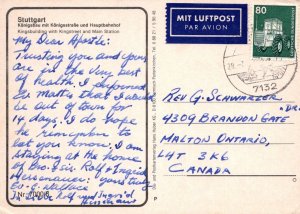 Stuttgart
Königsbau mit Königsstraße und Hauptbahnhof
Kingsbuilding with Kingstreet and Main Station
MIT LUFTPOST
PAR AVION
80
7132
My Dear Apostle:
Trusting you and yours
are in the very best
of health. I informed
Ss Mattis that I would
be out of town for
14 days. I do hope
he remember to
let you know, I am
staying at the home
of Bro. Sir. Rolf + Ingrid
yours truly
Ev. G. Wallace
Rev G. Schwarzer
4309 Brandon Gate
Drive
Malton Ontario,
L4T 3K6
Canada